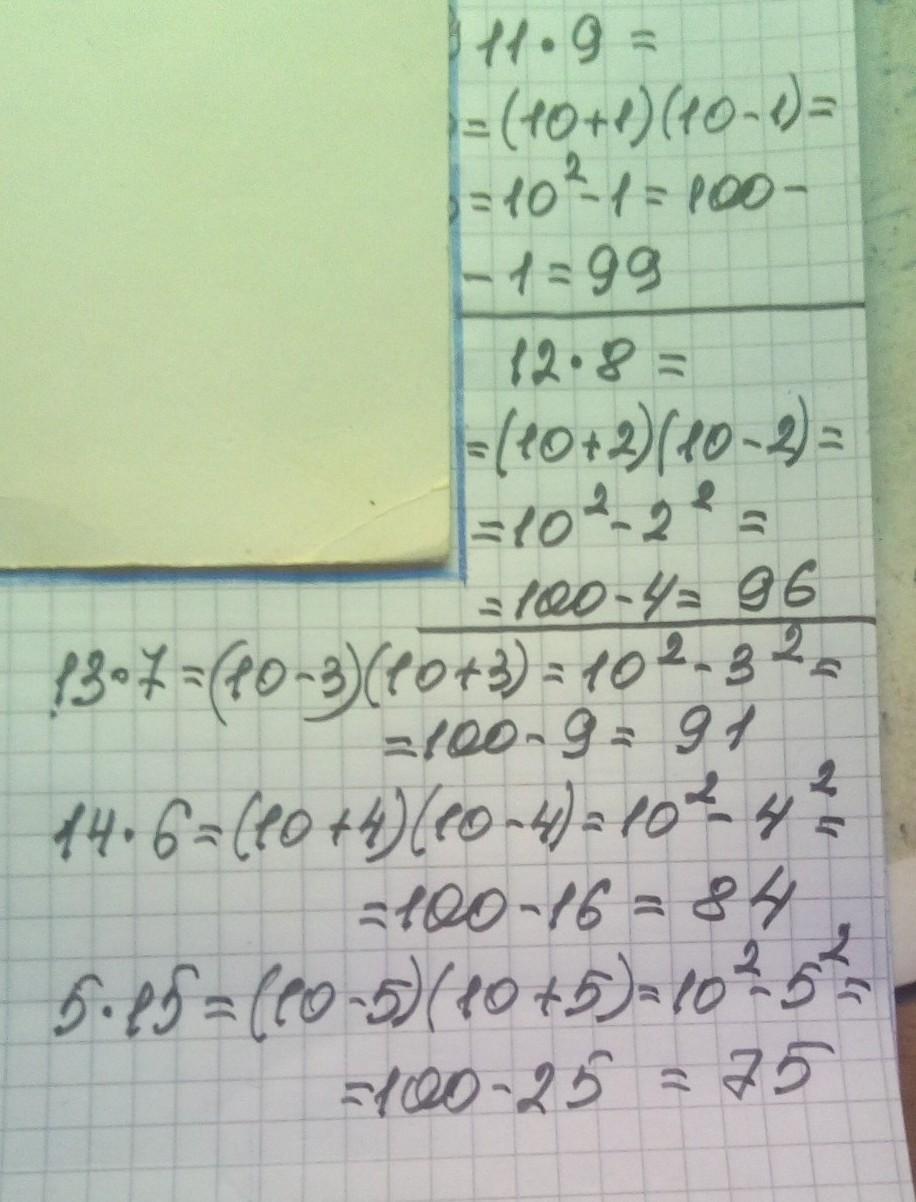 11·9=
=(10+1)(10-1)=
=10²-1=100-
-1=99
12·8=
=(10+2)(10-2)=
=10²-2²=
=100-4=96
13·7=(10-3)(10+3)=10²-3²=
=100-9=91
14·6=(10+4)(10-4)=10²-4²=
=100-16=84
5·15=(10-5)(10+5)=10²-5²=
=100-25=75